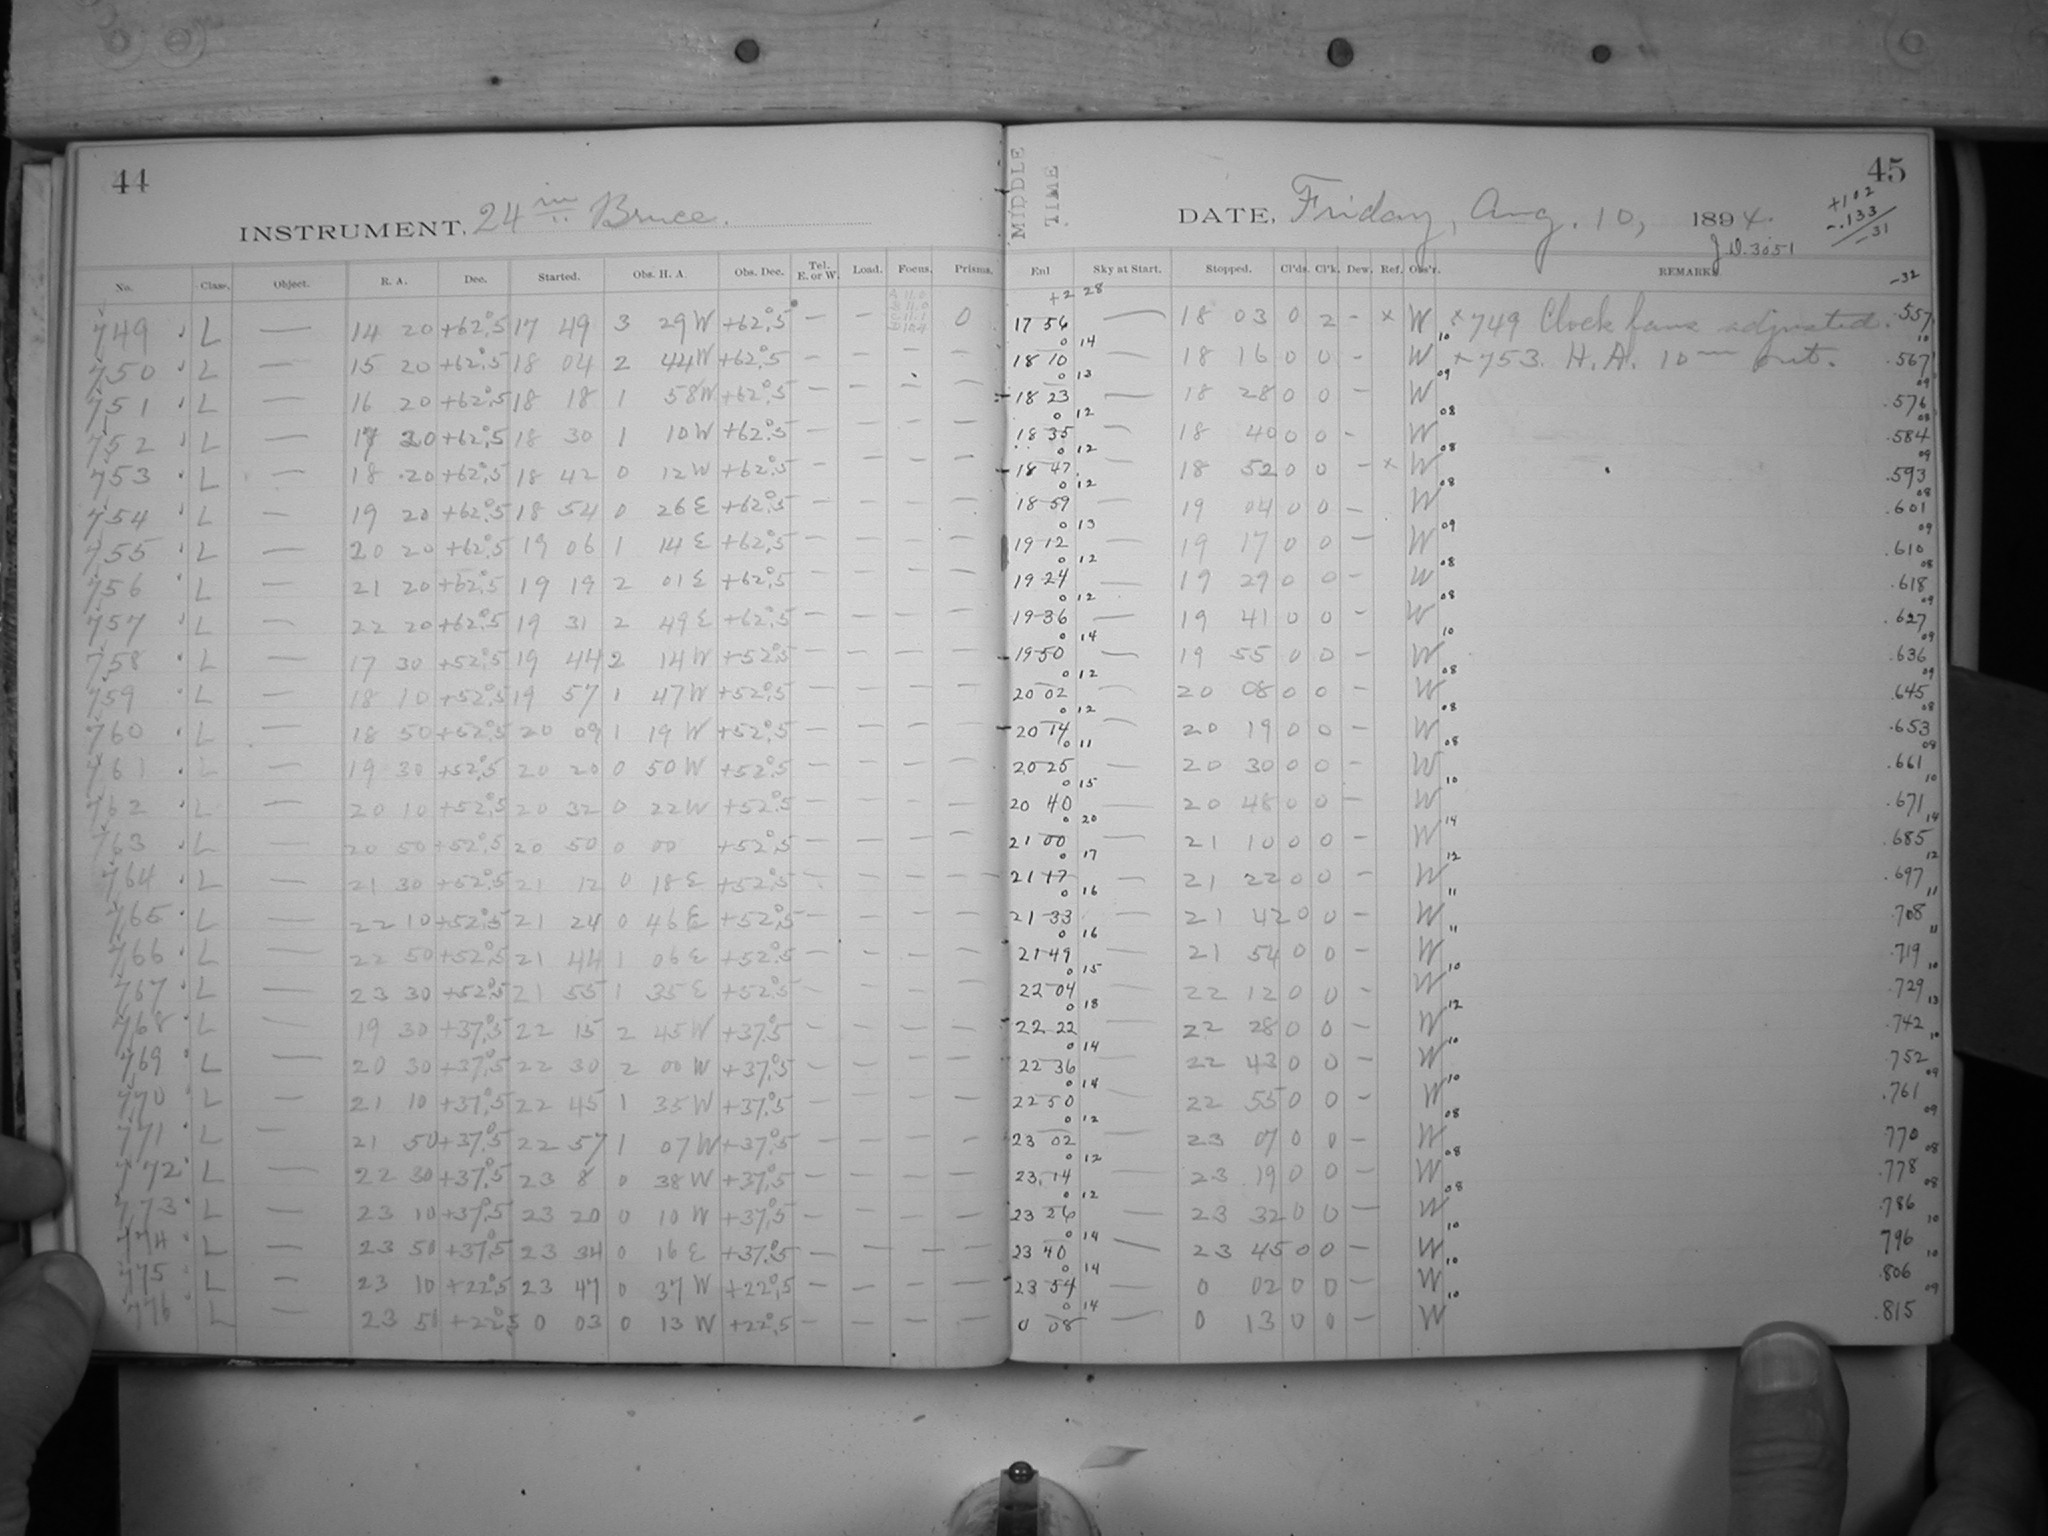 44
INSTRUMENT, 24 in Bruce.
MIDDLE TIME
DATE, Friday, Aug. 10, 1894.
45
+102
-.133
-31
J.D. 3051
-32
No. Class. Object. R. A. Dec. Started. Obs. H. A. Obs. Dec. Tel. E. or W. Load. Focus. Prisms. Enl Sky at Start. Stopped. Cl'ds. Cl'k. Dew. Ref. Obs'r. REMARKS.
+2 28
749 L — 14 20 +62°.5 17 49 3 29 W +62°.5 — — 0 17 56 — 18 03 0 2 - x W x 749 Clock fans adjusted. .557
0 14 10 10
750 L — 15 20 +62°.5 18 04 2 44 W +62°.5 — — — — 18 10 — 18 16 0 0 - W x 753. H.A. 10m out. .567
0 13 09 09
751 L — 16 20 +62°.5 18 18 1 58 W +62°.5 — — — — 18 23 — 18 28 0 0 - W .576
0 12 08 08
752 L — 17 20 +62°.5 18 30 1 10 W +62°.5 — — — — 18 35 — 18 40 0 0 - W .584
0 12 08 09
753 L — 18 20 +62°.5 18 42 0 12 W +62°.5 — — — — 18 47 — 18 52 0 0 - x W .593
0 12 08 08
754 L — 19 20 +62°.5 18 54 0 26 E +62°.5 — — — — 18 59 — 19 04 0 0 - W .601
0 13 09 09
755 L — 20 20 +62°.5 19 06 1 14 E +62°.5 — — — — 19 12 — 19 17 0 0 - W .610
0 12 08 08
756 L — 21 20 +62°.5 19 19 2 01 E +62°.5 — — — — 19 24 — 19 29 0 0 - W .618
0 12 08 09
757 L — 22 20 +62°.5 19 31 2 49 E +62°.5 — — — — 19 36 — 19 41 0 0 - W .627
0 14 10 09
758 L — 17 30 +52°.5 19 44 2 14 W +52°.5 — — — — 19 50 — 19 55 0 0 - W .636
0 12 08 09
759 L — 18 10 +52°.5 19 57 1 47 W +52°.5 — — — — 20 02 — 20 08 0 0 - W .645
0 12 08 08
760 L — 18 50 +52°.5 20 09 1 19 W +52°.5 — — — — 20 14 — 20 19 0 0 - W .653
0 11 08 08
761 L — 19 30 +52°.5 20 20 0 50 W +52°.5 — — — — 20 25 — 20 30 0 0 - W .661
0 15 10 10
762 L — 20 10 +52°.5 20 32 0 22 W +52°.5 — — — — 20 40 — 20 48 0 0 - W .671
0 20 14 14
763 L — 20 50 +52°.5 20 50 0 00 +52°.5 — — — — 21 00 — 21 10 0 0 - W .685
0 17 12 12
764 L — 21 30 +52°.5 21 12 0 18 E +52°.5 — — — — 21 17 — 21 22 0 0 - W .697
0 16 11 11
765 L — 22 10 +52°.5 21 24 0 46 E +52°.5 — — — — 21 33 — 21 42 0 0 - W .708
0 16 11 11
766 L — 22 50 +52°.5 21 44 1 06 E +52°.5 — — — — 21 49 — 21 54 0 0 - W .719
0 15 10 10
767 L — 23 30 +52°.5 21 55 1 35 E +52°.5 — — — — 22 04 — 22 12 0 0 - W .729
0 18 12 13
768 L — 19 30 +37°.5 22 15 2 45 W +37°.5 — — — — 22 22 — 22 28 0 0 - W .742
0 14 10 10
769 L — 20 30 +37°.5 22 30 2 00 W +37°.5 — — — — 22 36 — 22 43 0 0 - W .752
0 14 10 09
770 L — 21 10 +37°.5 22 45 1 35 W +37°.5 — — — — 22 50 — 22 55 0 0 - W .761
0 12 08 09
771 L — 21 50 +37°.5 22 57 1 07 W +37°.5 — — — — 23 02 — 23 07 0 0 - W 770
0 12 08 08
772 L — 22 30 +37°.5 23 8 0 38 W +37°.5 — — — — 23 14 — 23 19 0 0 - W .778
0 12 08 08
773 L — 23 10 +37°.5 23 20 0 10 W +37°.5 — — — — 23 26 — 23 32 0 0 - W .786
0 14 10 10
774 L — 23 50 +37°.5 23 34 0 16 E +37°.5 — — — — 23 40 — 23 45 0 0 - W 796
0 14 10 10
775 L — 23 10 +22°.5 23 47 0 37 W +22°.5 — — — — 23 54 — 0 02 0 0 - W .806
0 14 10 09
776 L — 23 50 +22°.5 0 03 0 13 W +22°.5 — — — — 0 08 — 0 13 0 0 - W .815